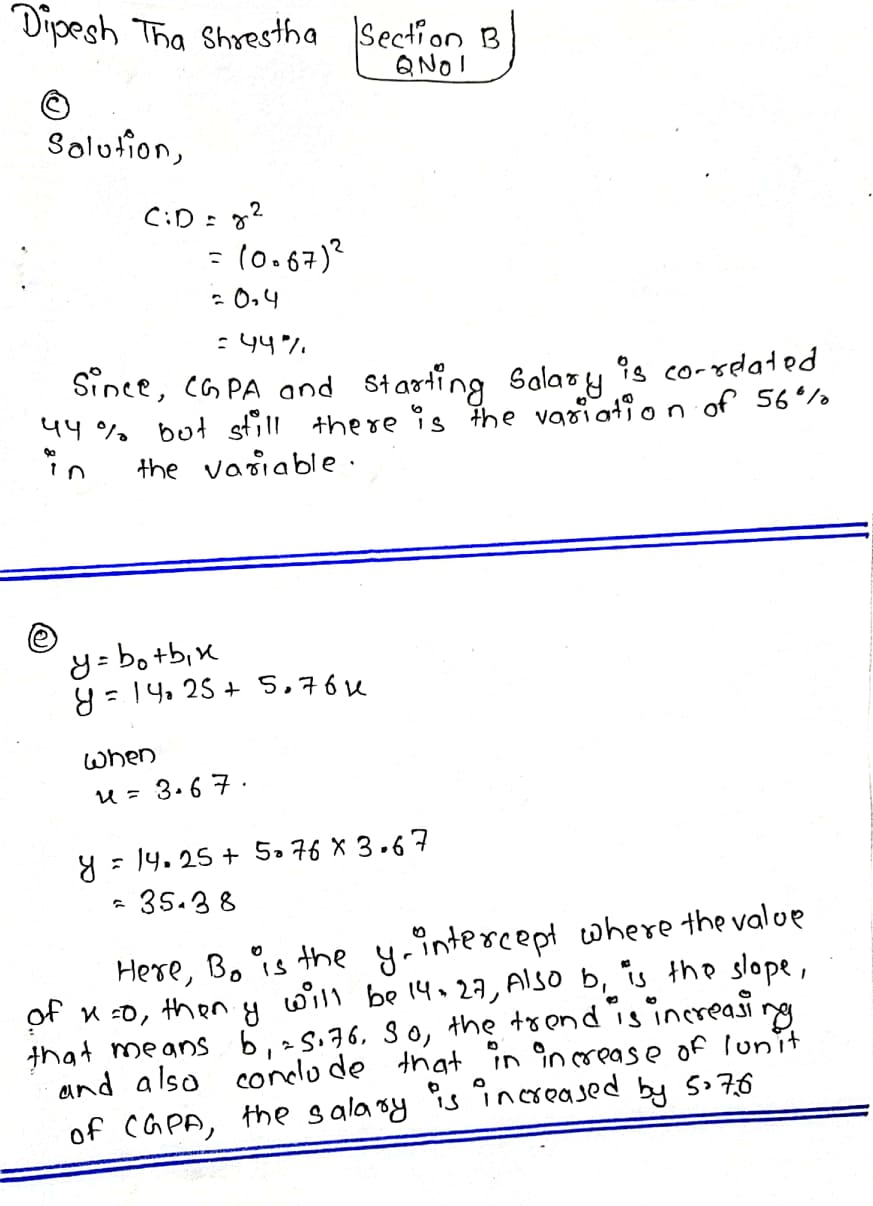 Dipesh Tha Shrestha
Section B
QNo1
ⓒ
Solution,
C.D = r²
= (0.67)²
= 0.4
= 44%
Since, CGPA and Starting Salary is co-related
44% but still there is the variation of 56%
in the variable.
ⓔ
y = b₀ + b₁x
y = 14.25 + 5.76x
when
x = 3.67.
y = 14.25 + 5.76 × 3.67
= 35.38
Here, B₀ is the y-intercept where the value
of x = 0, then y will be 14.27, Also b₁ is the slope,
that means b₁ = 5.76. So, the trend is increasing
and also conclude that in increase of 1unit
of CGPA, the salary is increased by 5.76